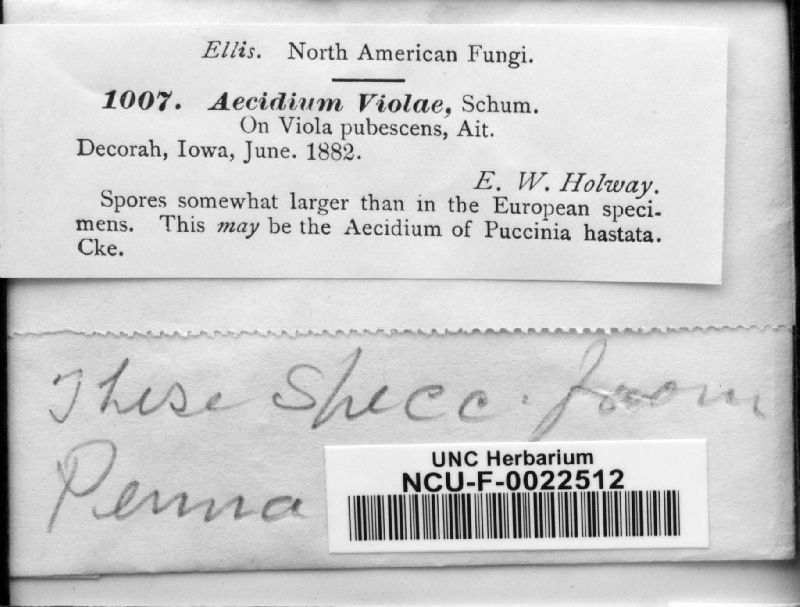 Ellis. North American Fungi.
1007. Aecidium Violae, Schum.
On Viola pubescens, Ait.
Decorah, Iowa, June. 1882.
E. W. Holway.
Spores somewhat larger than in the European speci-
mens. This may be the Aecidium of Puccinia hastata.
Cke.
These Specc. from
Penna
UNC Herbarium
NCU-F-0022512